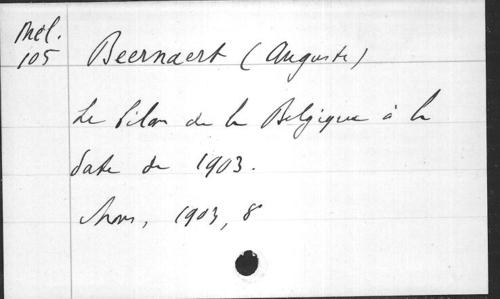 Mél.
105
Beernaert (Auguste)
Le bilan de la Belgique à la
date de 1903.
Mons, 1903, 8°